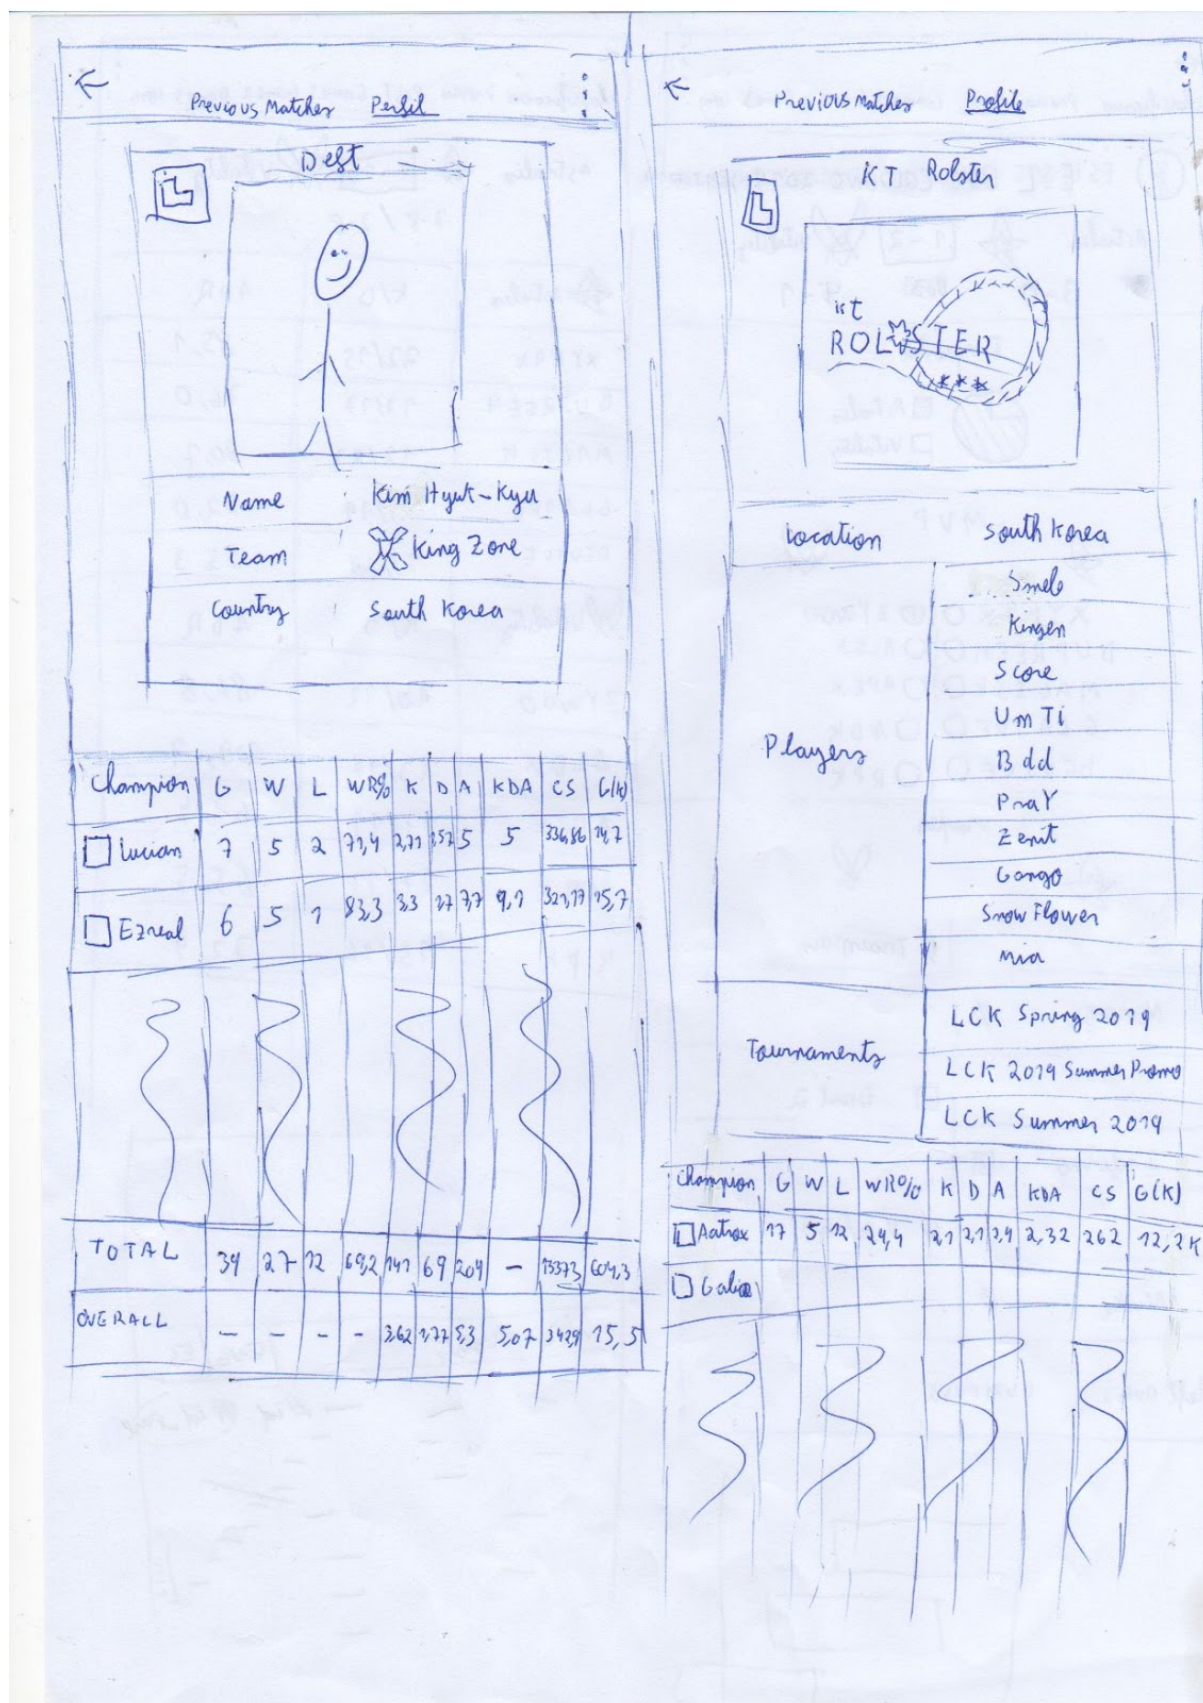 Previous Matches Perfil
Deft
Name Kim Hyuk-Kyu
Team King Zone
Country South Korea
Champion G W L WR% K D A KDA CS G(K)
Lucian 7 5 2 71,4 2,71 1,57 5 5 336,86 14,7
Ezreal 6 5 1 83,3 3,3 1,7 7,7 9,1 321,17 15,7
TOTAL 39 27 12 69,2 141 69 209 – 13373 604,3
OVERALL – – – – 3,62 1,77 5,3 5,07 342,9 15,5
Previous Matches Profile
KT Rolster
kt
ROLSTER
Location South Korea
Players
Smeb
Kingen
Score
UmTi
Bdd
PraY
Zenit
Gango
SnowFlower
Mia
Tournaments
LCK Spring 2019
LCK 2019 Summer Promo
LCK Summer 2019
Champion G W L WR% K D A KDA CS G(K)
Aatrox 17 5 12 29,4 2,1 2,1 2,9 2,32 262 12,2K
Galio